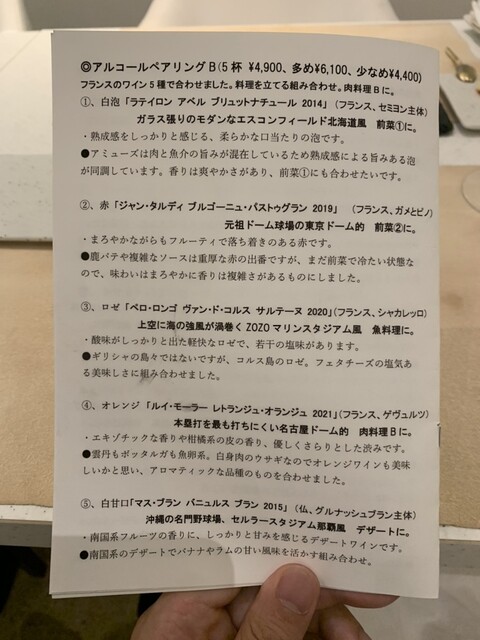 ◎アルコールペアリングB(5杯 ¥4,900、多め¥6,100、少なめ¥4,400)
フランスのワイン5種で合わせました。料理を立てる組み合わせ。肉料理Bに。
①、白泡「ラテイロン アベル ブリュットナチュール 2014」(フランス、セミヨン主体)
ガラス張りのモダンなエスコンフィールド北海道風 前菜①に。
・熟成感をしっかりと感じる、柔らかな口当たりの泡です。
●アミューズは肉と魚介の旨みが混在しているため熟成感による旨みある泡
が同調しています。香りは爽やかさがあり、前菜①にも合わせたいです。
②、赤「ジャン・タルディ ブルゴーニュ・パストゥグラン 2019」 (フランス、ガメとピノ)
元祖ドーム球場の東京ドーム的 前菜②に。
・まろやかながらもフルーティで落ち着きのある赤です。
●鹿パテや複雑なソースは重厚な赤の出番ですが、まだ前菜で冷たい状態な
ので、味わいはまろやかに香りは複雑さがあるものにしました。
③、ロゼ「ペロ・ロンゴ ヴァン・ド・コルス サルテーヌ 2020」(フランス、シャカレッロ)
上空に海の強風が渦巻くZOZOマリンスタジアム風 魚料理に。
・酸味がしっかりと出た軽快なロゼで、若干の塩味があります。
●ギリシャの島々ではないですが、コルス島のロゼ。フェタチーズの塩気あ
る美味しさに組み合わせました。
④、オレンジ「ルイ・モーラー レトランジュ・オランジュ 2021」(フランス、ゲヴュルツ)
本塁打を最も打ちにくい名古屋ドーム的 肉料理Bに。
・エキゾチックな香りや柑橘系の皮の香り、優しくさらりとした渋みです。
●雲丹もボッタルガも魚卵系。白身肉のウサギなのでオレンジワインも美味
しいかと思い、アロマティックな品種のものを合わせました。
⑤、白甘口「マス・ブラン バニュルス ブラン 2015」(仏、グルナッシュブラン主体)
沖縄の名門野球場、セルラースタジアム那覇風 デザートに。
・南国系フルーツの香りに、しっかりと甘みを感じるデザートワインです。
●南国系のデザートでバナナやラムの甘い風味を活かす組み合わせ。